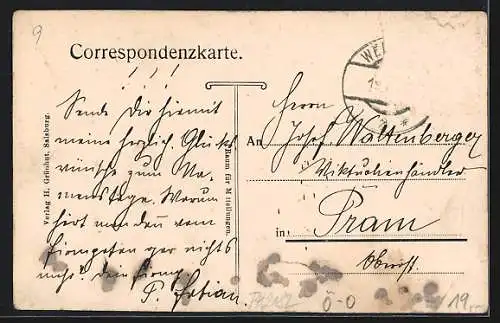 9
Correspondenzkarte.
! ! !
Sende Dir hiermit
meine herzlich. Glück
wünsche zum Na-
menstage. Warum
hört man den vom
gar nichts
mehr?
P. Fabian
Verlag H. Grünhut, Salzburg.
Raum für Mitteilungen.
WE
Herrn
An Josef Waltenberger
Viktualienhändler
in Pram
Oberöst.
Ö-O
19